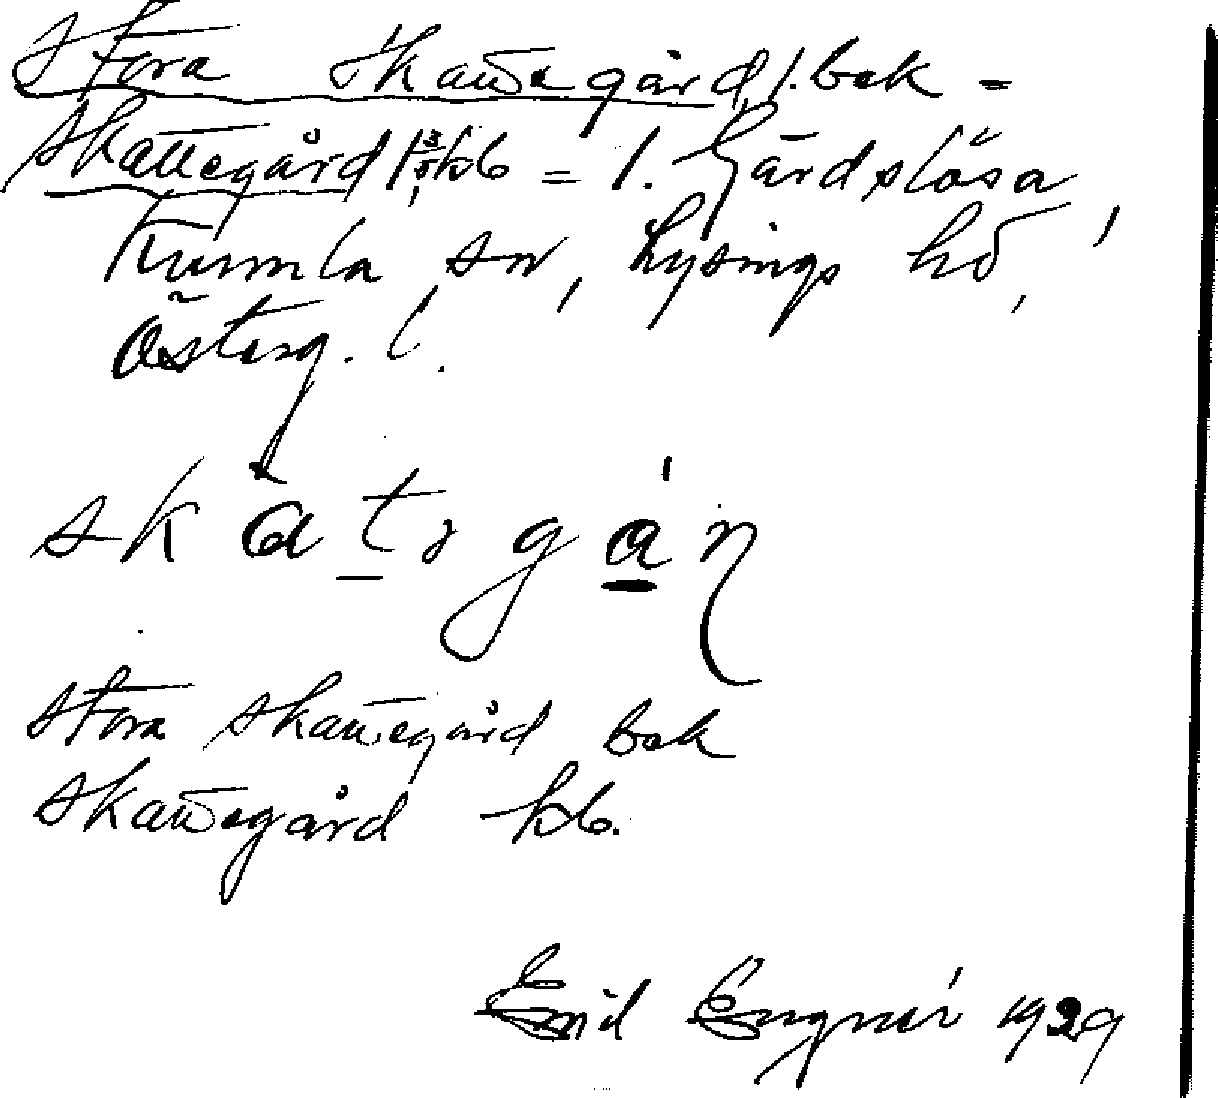 Stora Skattegård 1. bek =
Skattegård 1 kb = 1. Gärdslösa,
Kumla sn, Lysings hd,
Österg. l.
skatsgán
Stora Skattegård bek
Skattegård kb.
Enid Engnér 1929